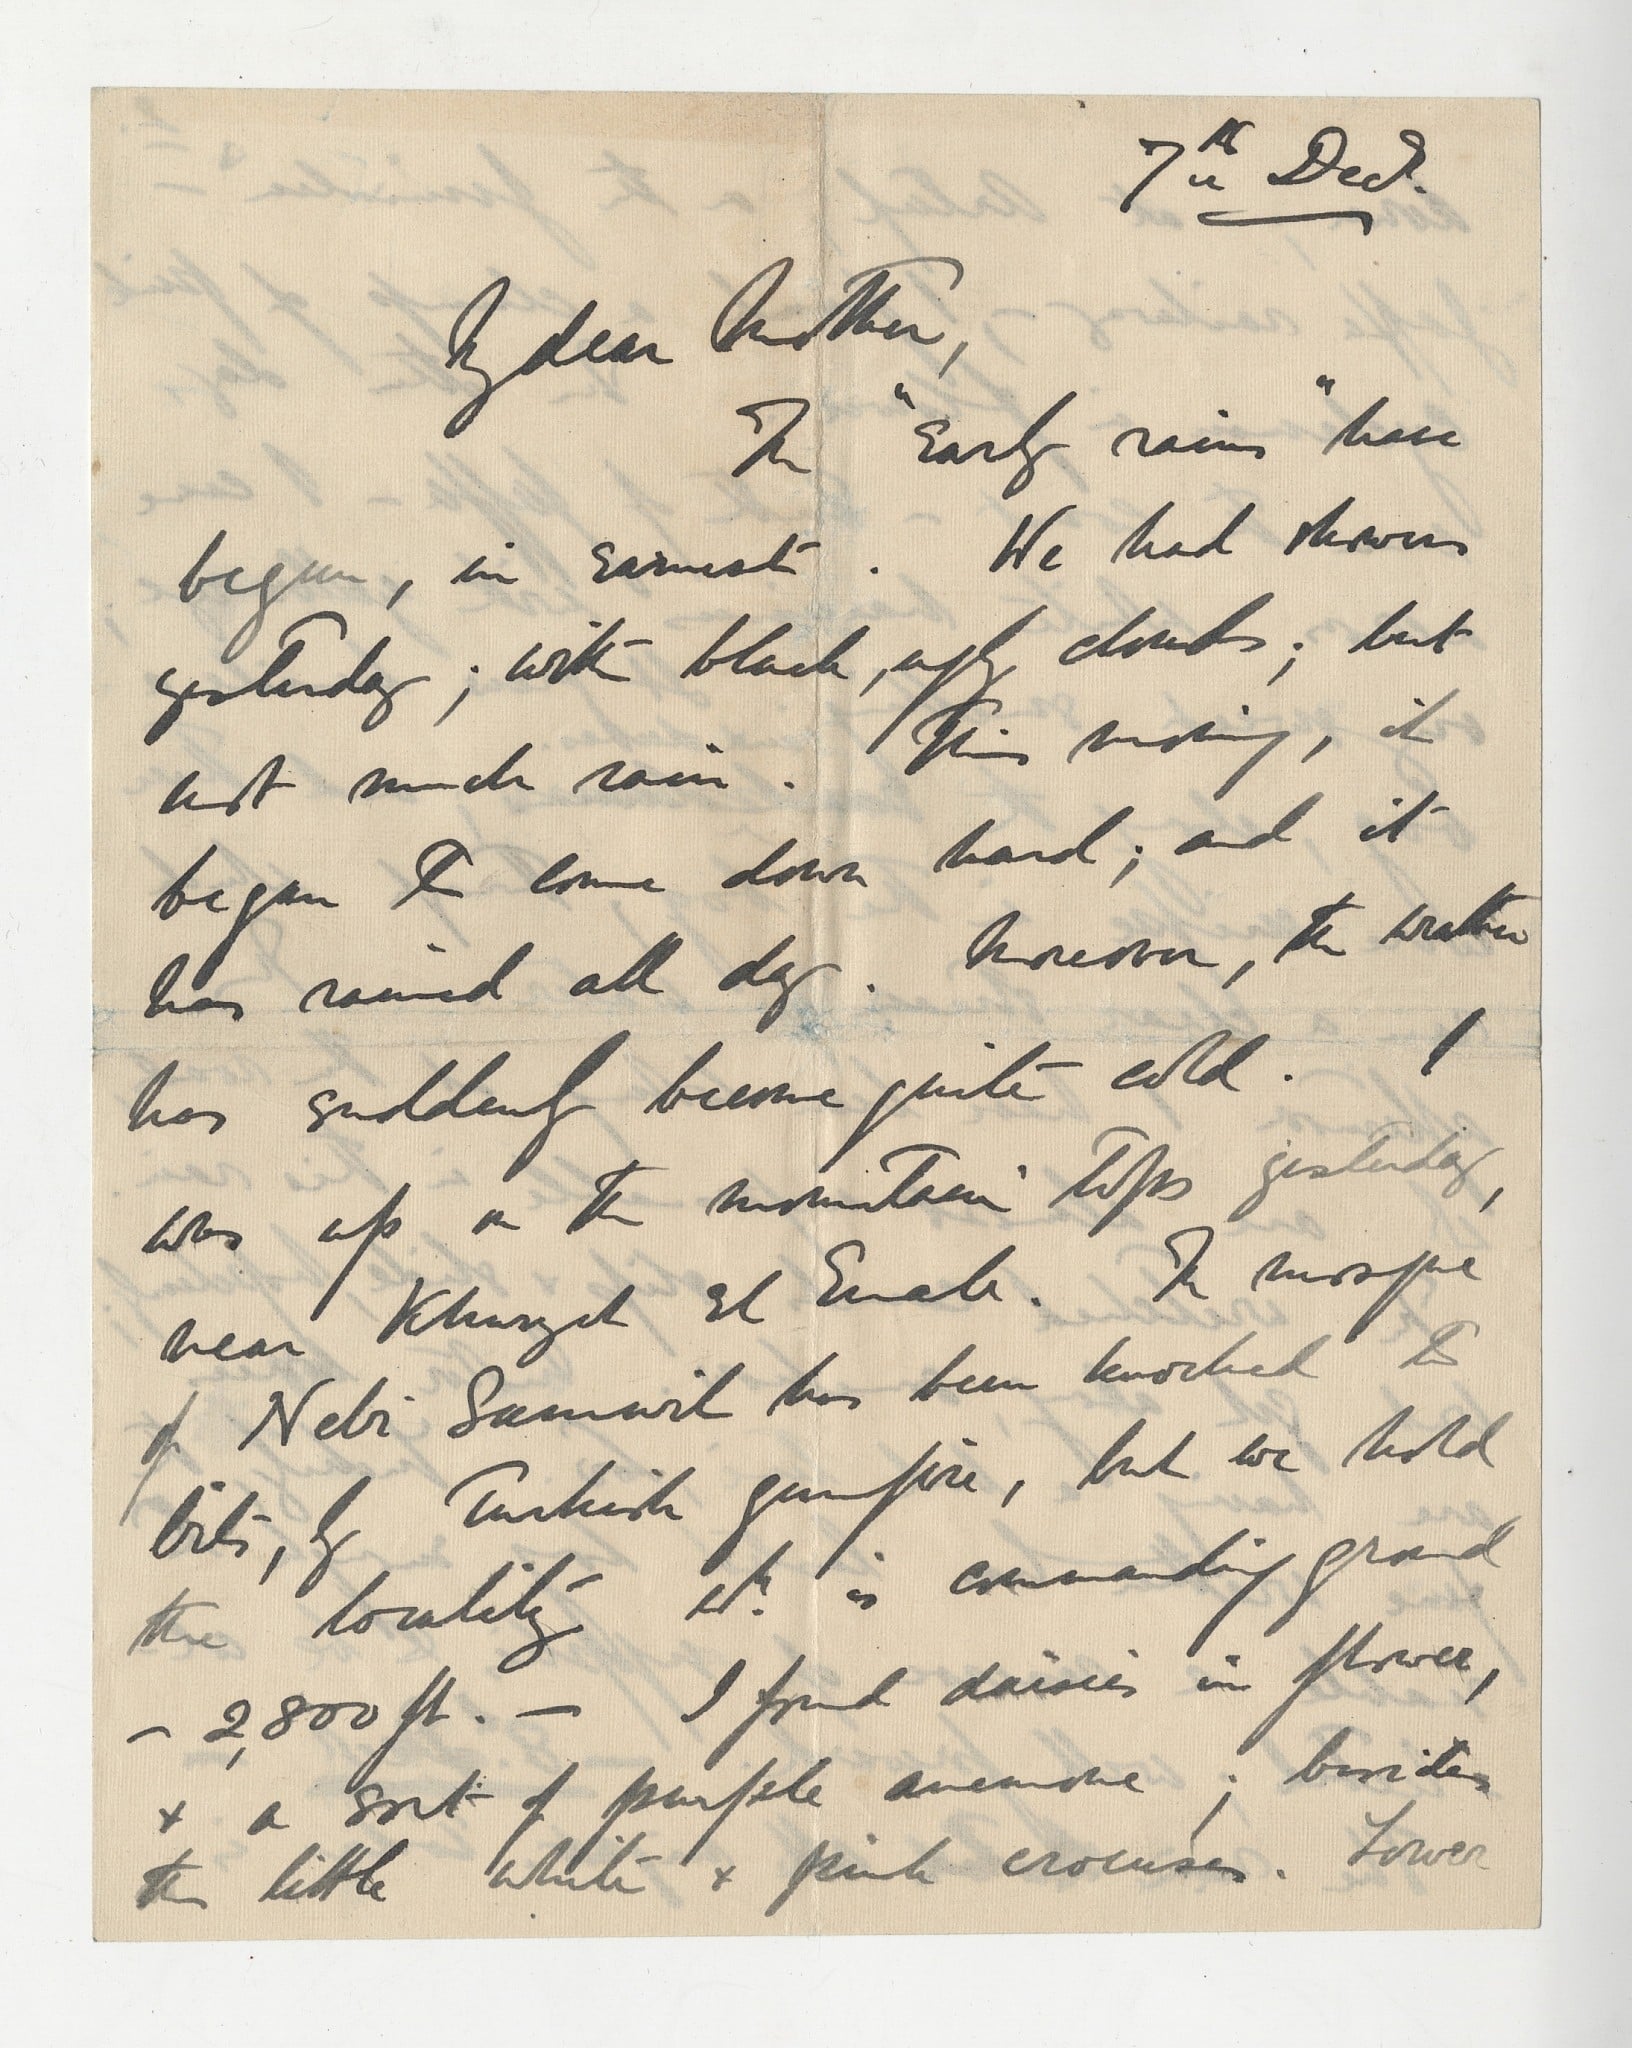 7th Dec.
My dear Mother,
The "Early rains" have
begun, in earnest. We had showers
yesterday; with black, ugly clouds; but
not much rain. This morning, it
began to come down hard; and it
has rained all day. Moreover, the weather
has suddenly become quite cold. I
was up on the mountain tops yesterday,
near Khurget El Enab. The mosque
of Nebi Samwil has been knocked to
bits, by Turkish gunfire, but we hold
the locality wh. is commanding ground
- 2,800 ft. - I found daisies in flower,
+ a sort of purple anemone; besides
the little white + pink crocuses. Lower